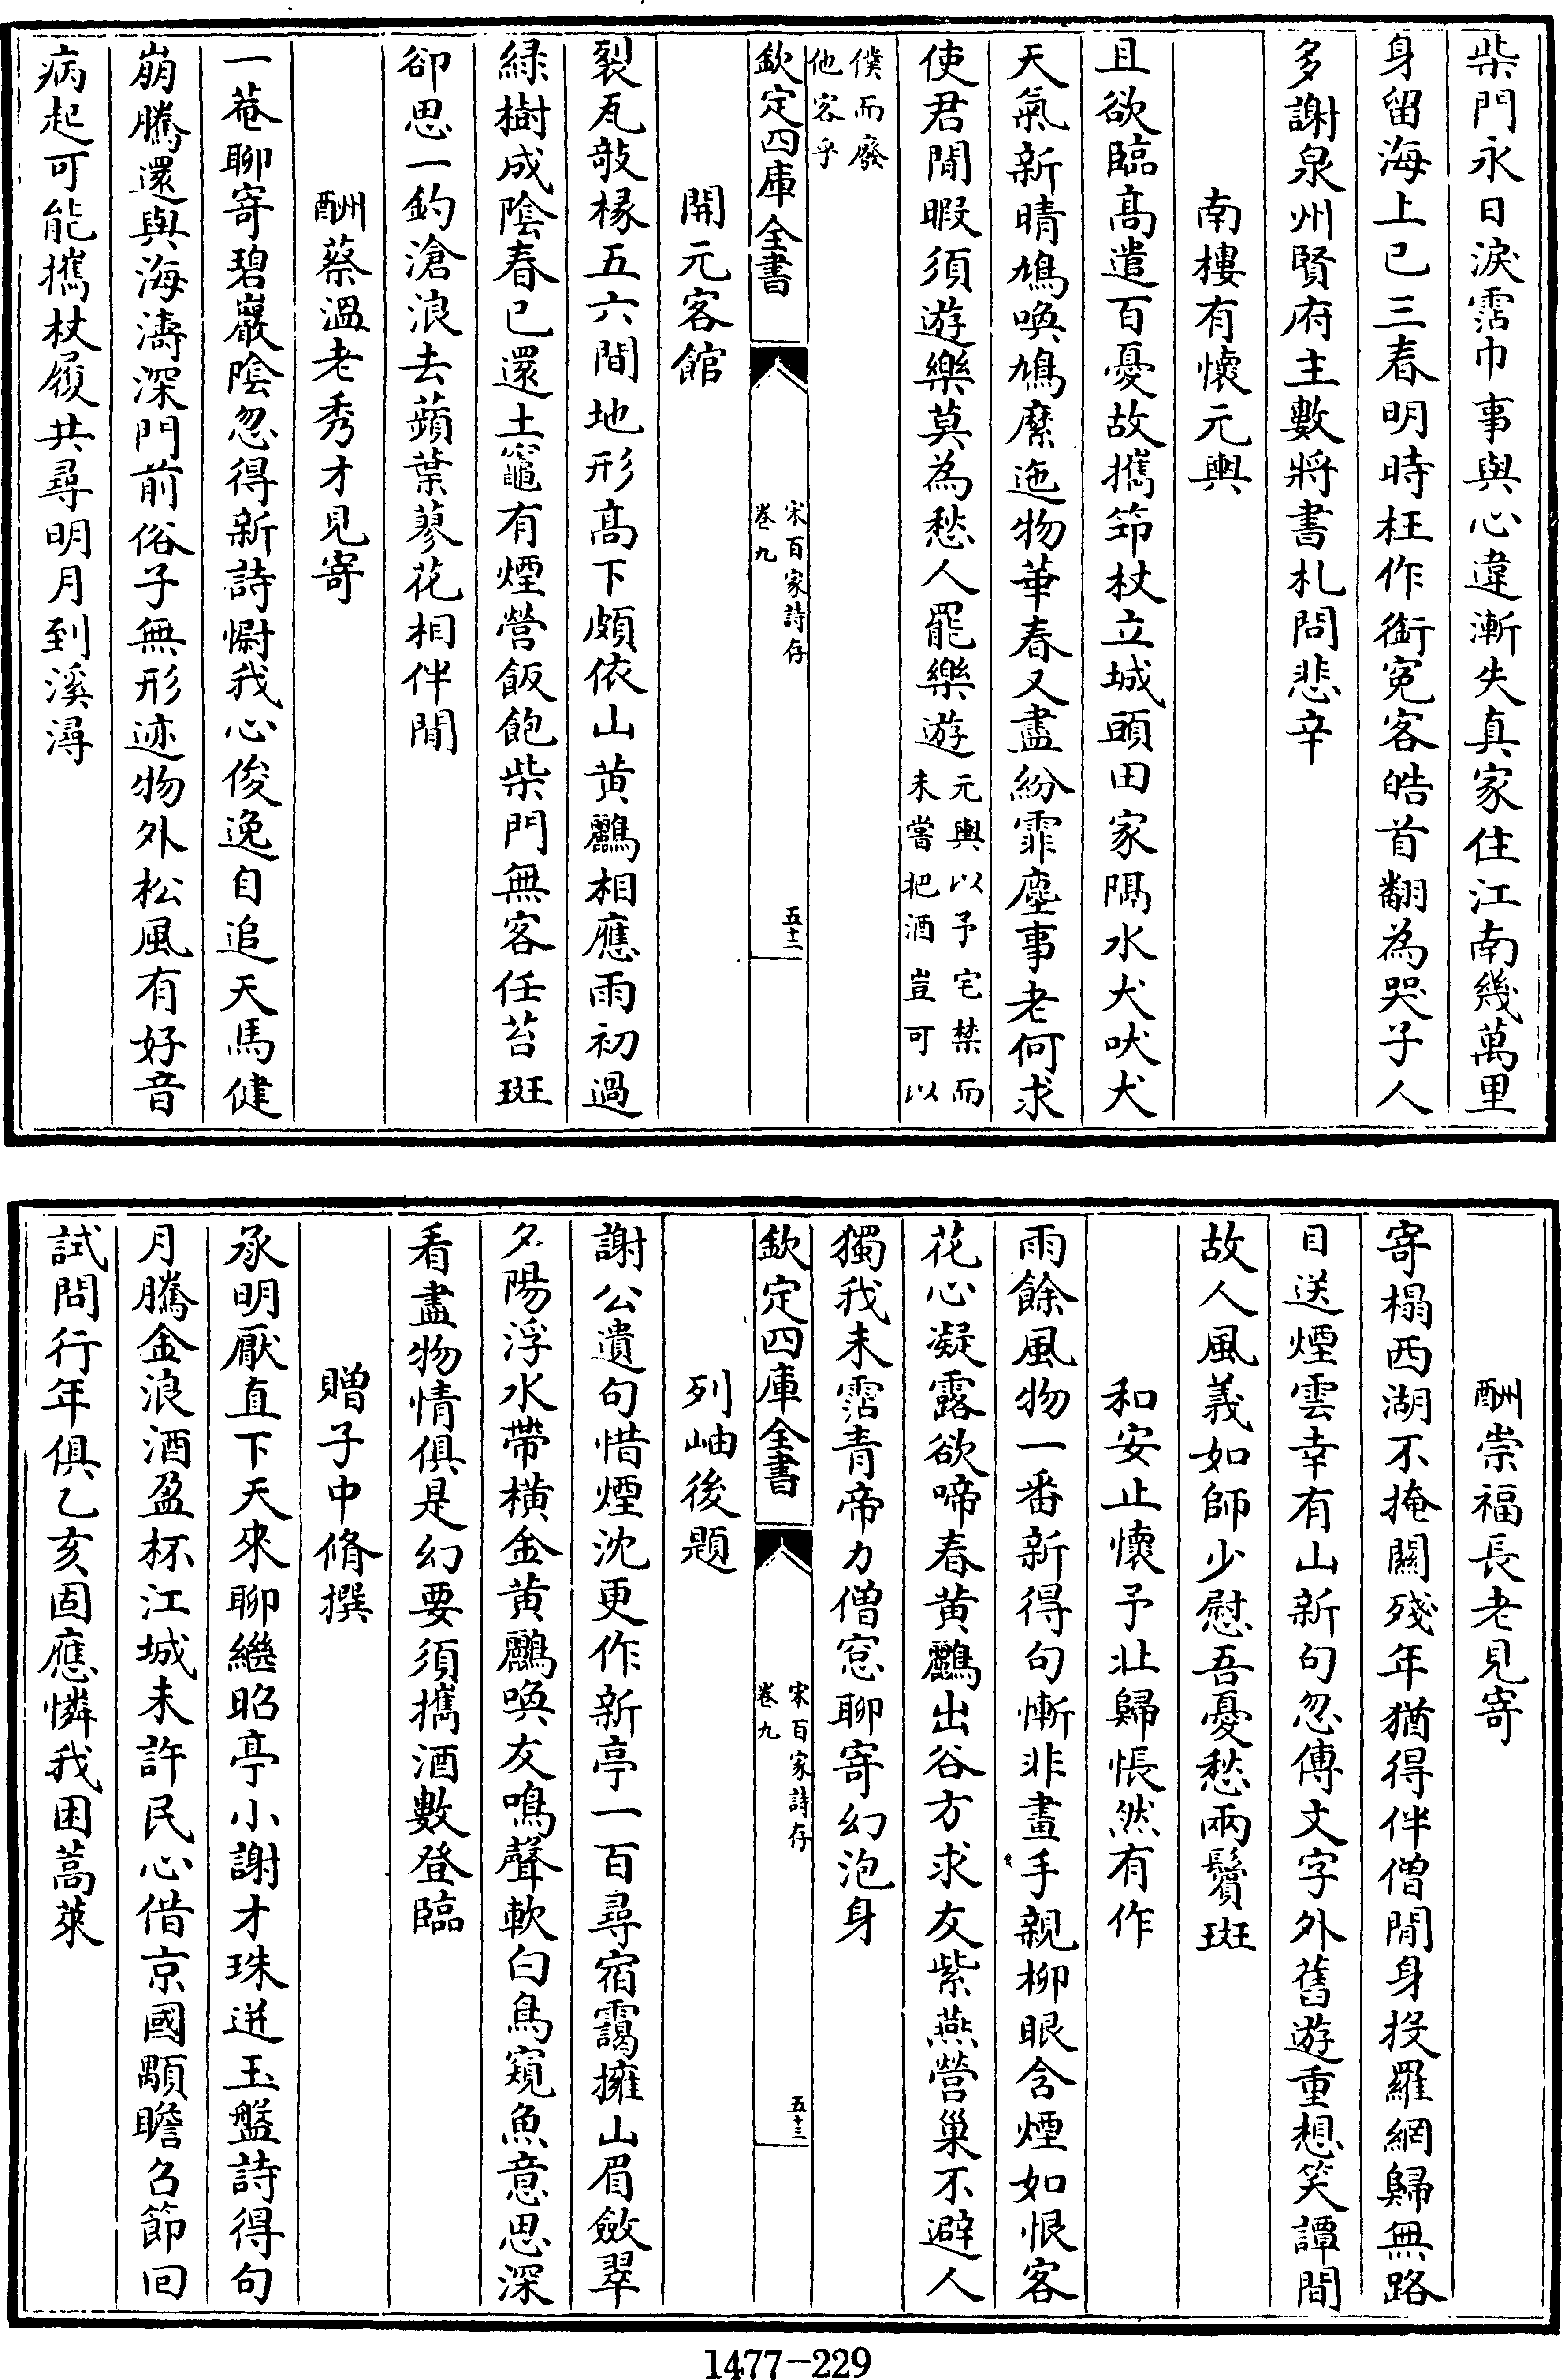 柴門永日淚霑巾事與心違漸失真家住江南幾萬里
身留海上已三春明時枉作銜寃客皓首翻為哭子人
多謝泉州賢府主數將書札問悲辛
南樓有懷元輿
且欲臨高遣百憂故攜笻杖立城頭田家隔水犬吠犬
天氣新晴鳩喚鳩縻迤物華春又盡紛霏塵事老何求
使君閒暇須遊樂莫為愁人罷樂遊元輿以予宅禁而
未嘗把酒豈可以
僕而廢
他客乎
欽定四庫全書
宋百家詩存
卷九
五十二
開元客館
裂瓦敧椽五六間地形高下頗依山黄鸝相應雨初過
緑樹成陰春已還土竈有煙營飯飽柴門無客任苔斑
卻思一釣滄浪去蘋葉蓼花相伴閒
酬蔡溫老秀才見寄
一菴聊寄碧巖陰忽得新詩慰我心俊逸自追天馬健
崩騰還與海濤深門前俗子無形迹物外松風有好音
病起可能攜杖屨共尋明月到溪潯
酬崇福長老見寄
寄榻西湖不掩關殘年猶得伴僧閒身投羅網歸無路
目送煙雲幸有山新句忽傳文字外舊遊重想笑譚間
故人風義如師少慰吾憂愁兩鬢斑
和安止懷予北歸悵然有作
雨餘風物一番新得句慚非畫手親柳眼含煙如恨客
花心凝露欲啼春黄鸝出谷方求友紫燕營巢不避人
獨我未霑青帝力僧窓聊寄幻泡身
欽定四庫全書
宋百家詩存
卷九
五十三
列岫後題
謝公遺句惜煙沈更作新亭一百尋宿靄擁山眉斂翠
夕陽浮水帶橫金黄鸝喚友鳴聲軟白鳥窺魚意思深
看盡物情俱是幻要須攜酒數登臨
贈子中脩撰
承明厭直下天來聊繼昭亭小謝才珠迸玉盤詩得句
月騰金浪酒盈杯江城未許民心借京國顒瞻召節回
試問行年俱乙亥固應憐我困蒿萊
1477-229